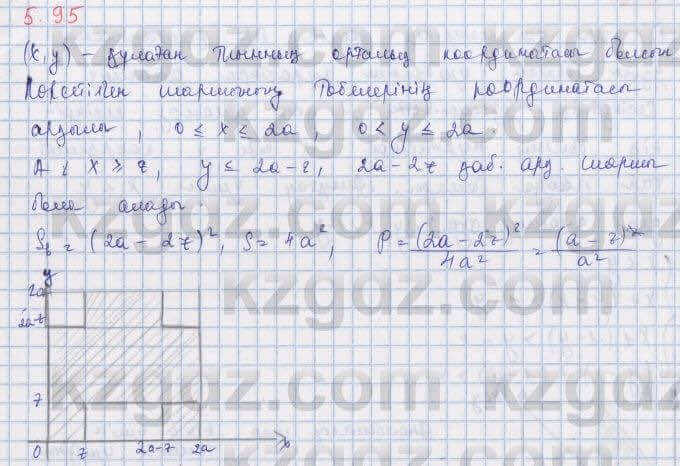 5.95
(x, y) - құлаған тиынның орталық координатасы болсын
көрсетілген шаршының төбелерінің координатасы
арқылы, 0 ≤ x ≤ 2a, 0 < y ≤ 2a.
A { x ≥ z, y ≤ 2a - z, 2a - 2z қаб. арқ. шаршы
бола алады.
S_b = (2a - 2z)², S = 4a², P = (2a - 2z)² / 4a² = (a - z)² / a²
y
2a
2a-z
z
0 z 2a-z 2a x
kzgdz.com
kzgdz.com
kzgdz.com
kzgdz.com